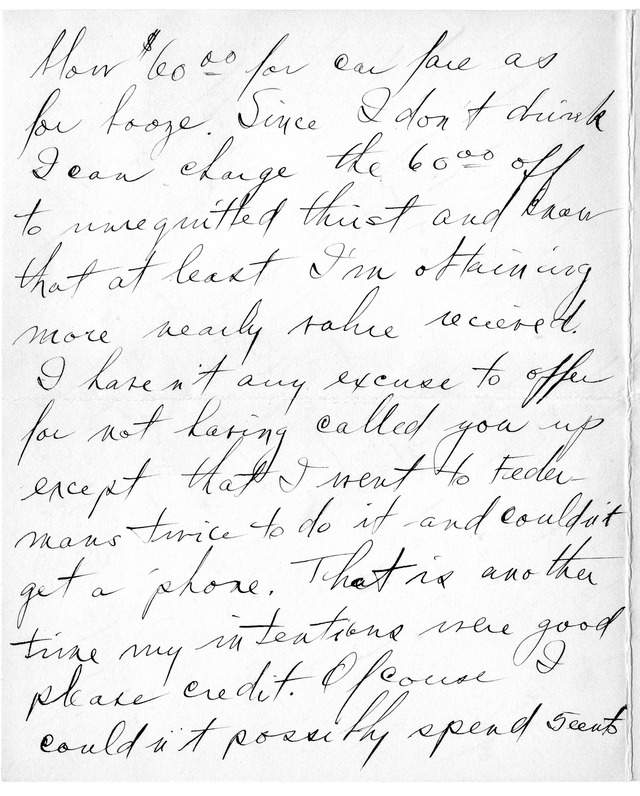 blow $60.00 for car fare as
for booze. Since I don't drink
I can charge the 60.00 off
to unrequitted thirst and know
that at least I'm obtaining
more nearly value recieved.
I haven't any excuse to offer
for not having called you up
except that I went to Feder-
mans twice to do it and couldn't
get a 'phone. That is another
time my intentions were good
please credit. Of couse I
couldn't possibly spend 5cents